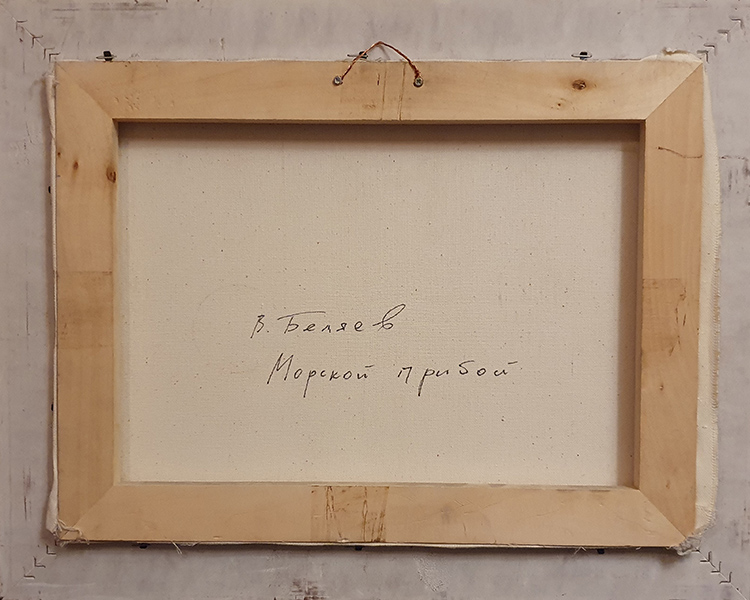 В. Беляев
Морской прибой